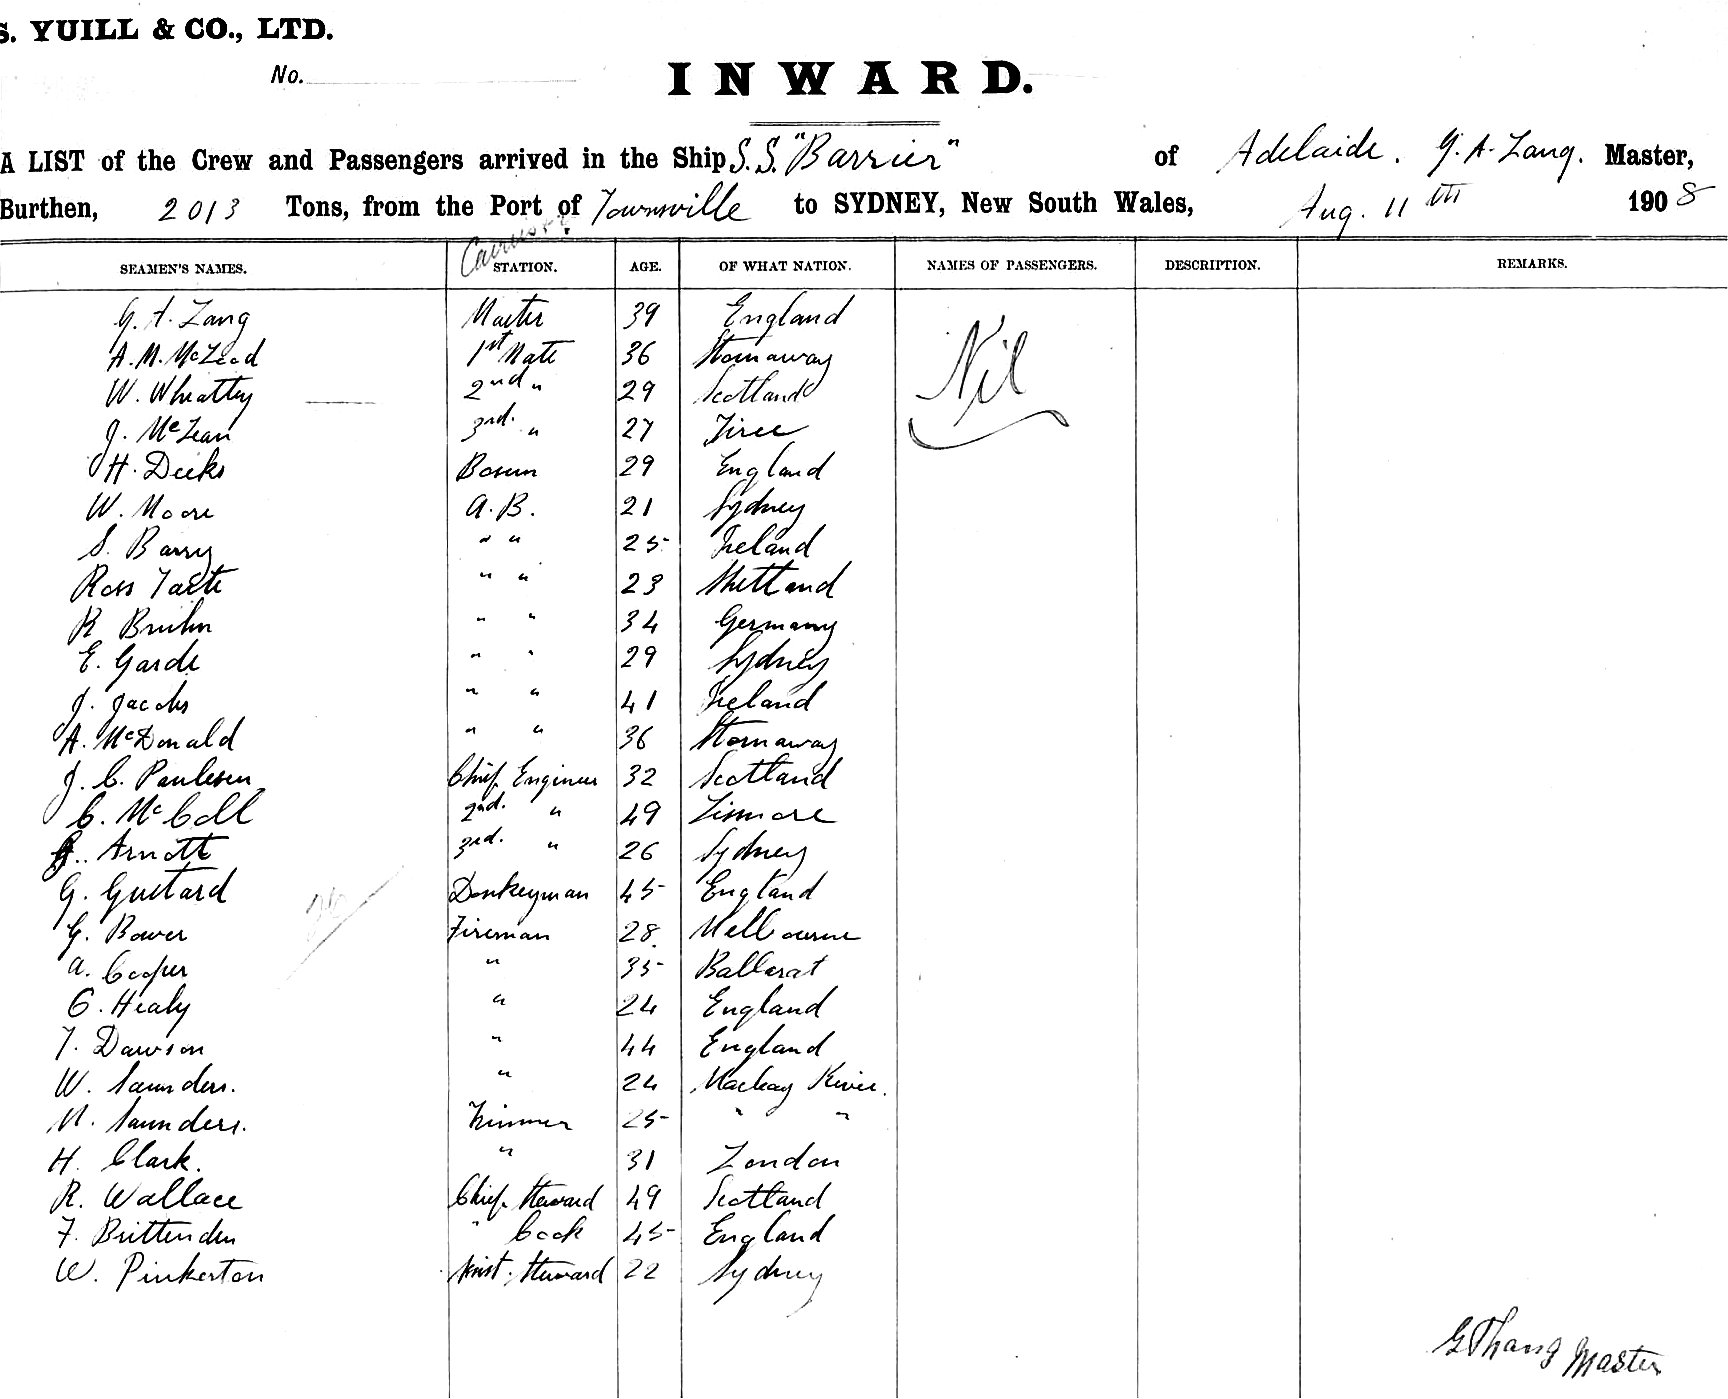 S. YUILL & CO., LTD.
No.
INWARD.
A LIST of the Crew and Passengers arrived in the Ship S.S. "Barrier" of Adelaide. G. A. Lang. Master,
Burthen, 2013 Tons, from the Port of Townsville to SYDNEY, New South Wales, Aug. 11th 1908
SEAMEN'S NAMES. STATION. AGE. OF WHAT NATION. NAMES OF PASSENGERS. DESCRIPTION. REMARKS.
G. A. Lang Master 39 England Nil
A. M. McLeod 1st Mate 36 Stornaway
W. Wheatley 2nd " 29 Scotland
J. McLean 3rd. " 27 Tiree
H. Deeks Bosun 29 England
W. Moore A.B. 21 Sydney
S. Barry " " 25 Ireland
Ross Taite " " 23 Shetland
R Bruhn " " 34 Germany
E. Garde " " 29 Sydney
J. Jacobs " " 41 Ireland
A. McDonald " " 36 Stornaway
J. C. Paulesen Chief Engineer 32 Scotland
C. McColl 2nd. " 49 Lismore
Arnott 3rd. " 26 Sydney
G. Guttard Donkeyman 45 England
G. Bower Fireman 28 Melbourne
A. Cooper " 35 Ballarat
C. Healy " 24 England
T. Dawson " 44 England
W. Saunders. " 24 Mackay River.
M. Saunders. Trimmer 25 " "
H. Clark. " 31 London
R. Wallace Chief Steward 49 Scotland
F. Brittenden " Cook 45 England
W. Pinkerton Asist. Steward 22 Sydney
Master